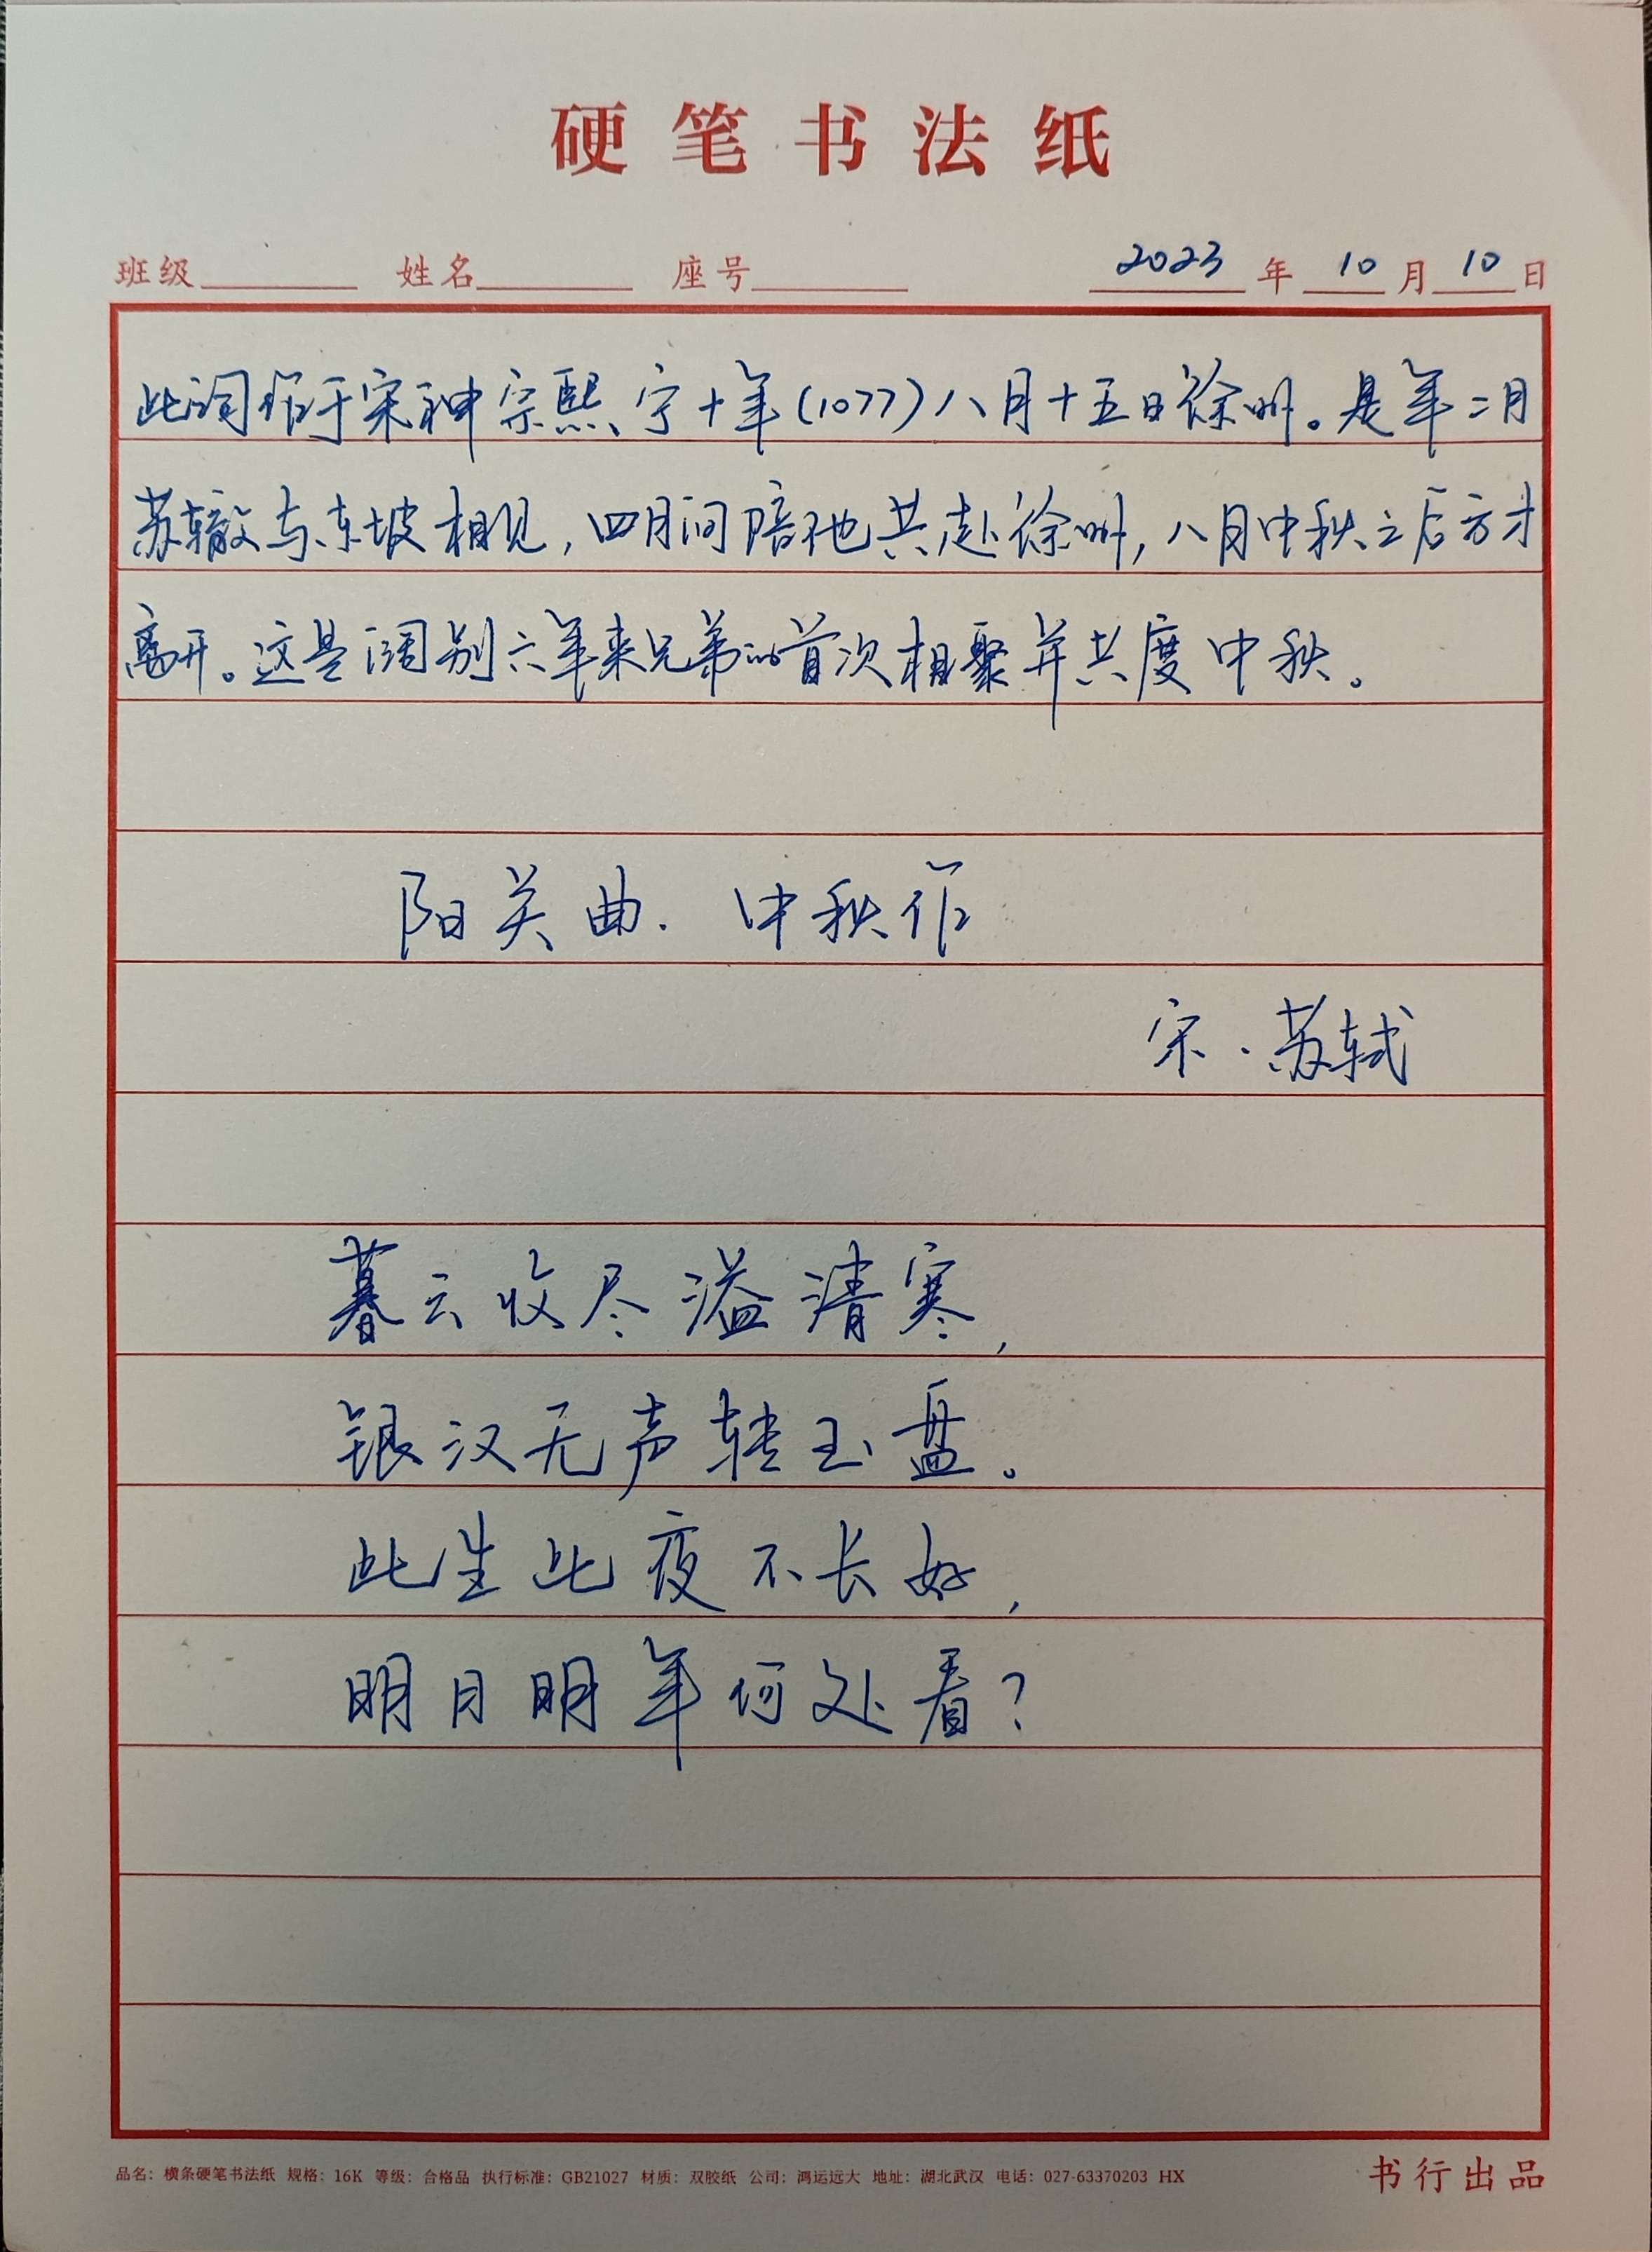 硬笔书法纸
班级 姓名 座号 2023年10月10日
此词作于宋神宗熙宁十年(1077)八月十五日徐州。是年二月
苏辙与东坡相见,四月间陪他共赴徐州,八月中秋之后方才
离开。这是阔别六年来兄弟的首次相聚并共度中秋。
阳关曲·中秋作
宋·苏轼
暮云收尽溢清寒,
银汉无声转玉盘。
此生此夜不长好,
明月明年何处看?
品名:横条硬笔书法纸 规格:16K 等级:合格品 执行标准:GB21027 材质:双胶纸 公司:鸿运远大 地址:湖北武汉 电话:027-63370203 HX
书行出品